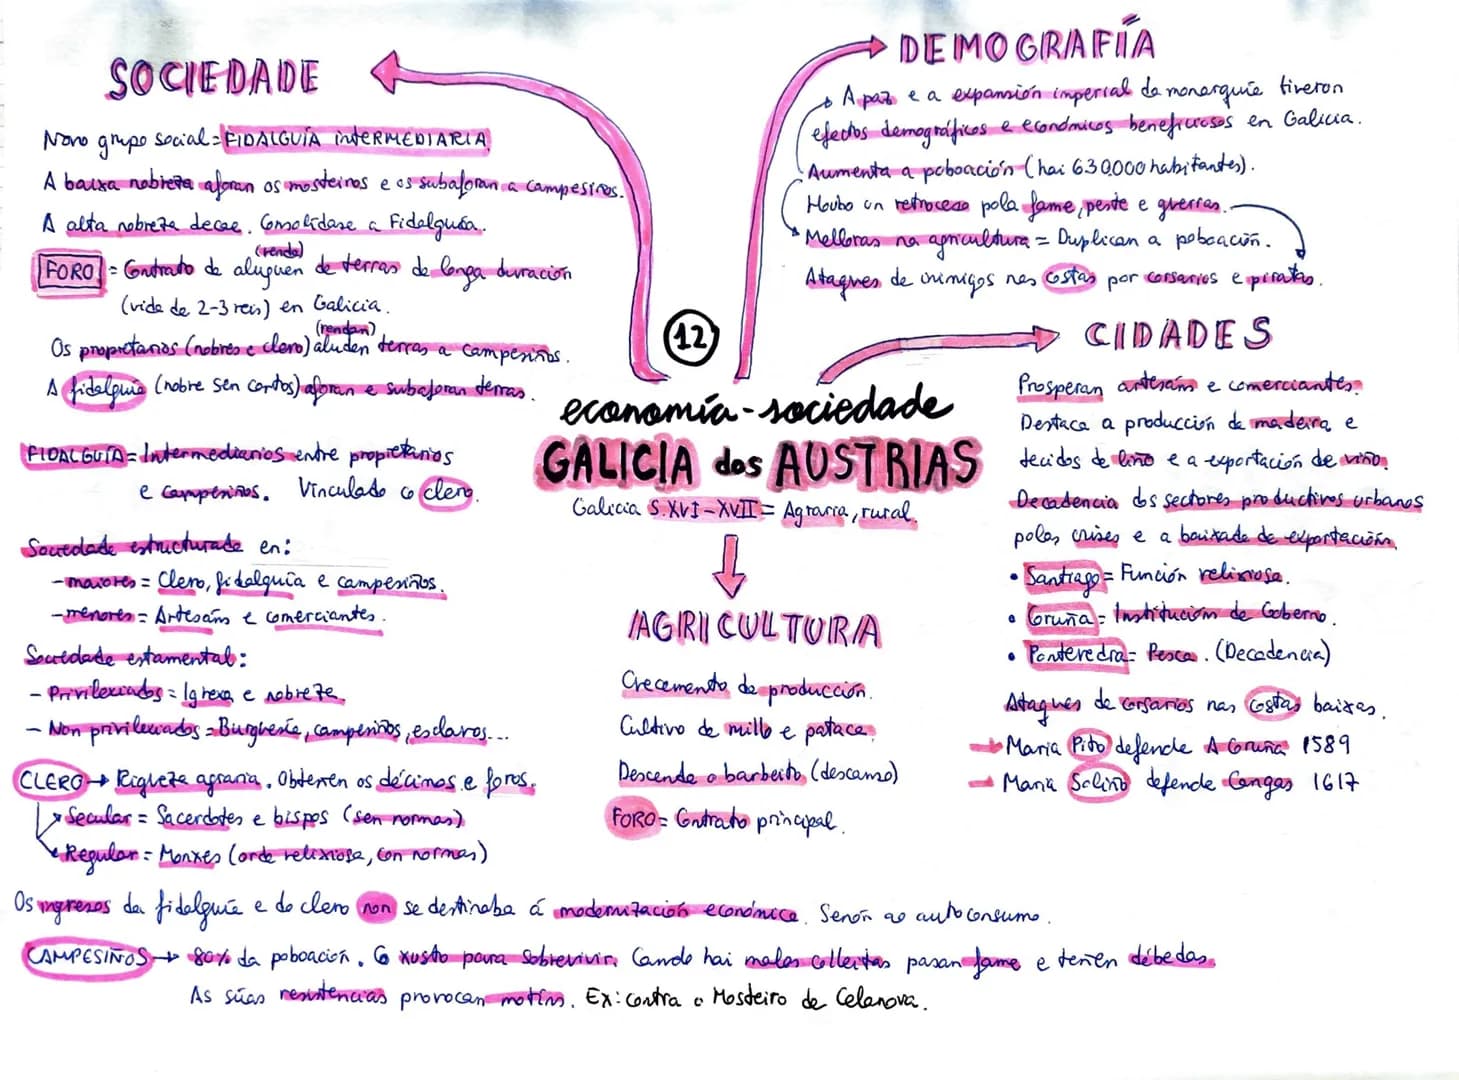 SOCIEDADE
Novo grupo social = FIDALGUÍA INTERMEDIARIA
A baixa nobreza aforan os mosteiros e os subaforan a campesiños.
A alta nobreza decae. Consolídase a Fidalguía.
(renda)
FORO = Contrato de aluguer de terras de longa duración
(vida de 2-3 reis) en Galicia.
(rendan)
Os propietarios (nobres e clero) aluden terras a campesiños.
A fidalguía (nobre sen cartos) aforan e subaforan terras.
FIDALGUÍA = Intermediarios entre propietarios
e campesiños. Vinculado co clero.
Sociedade estructurada en:
- maiores = Clero, fidalguía e campesiños.
- menores = Artesáns e comerciantes.
Sociedade estamental:
- Privilexiados = Igrexa e nobreza.
- Non privilexiados = Burguesía, campesiños, esclavos...
CLERO → Riqueza agraria. Obteñen os décimos e foros.
Secular = Sacerdotes e bispos (sen normas)
Regular = Monxes (orde relixiosa, con normas)
Os ingresos da fidalguía e do clero non se destinaba á modernización económica. Senón ao autoconsumo.
CAMPESIÑOS → 80% da poboación. O xusto para sobrevivir. Cando hai malas colleitas pasan fame e teñen débedas.
As súas resistencias provocan motíns. Ex: contra o Mosteiro de Celanova.
12
economía - sociedade
GALICIA dos AUSTRIAS
Galicia S.XVI-XVII = Agraria, rural.
AGRICULTURA
Crecemento da producción.
Cultivo de millo e pataca.
Descende o barbeito (descanso)
FORO = Contrato principal.
DEMOGRAFÍA
A paz e a expansión imperial da monarquía tiveron
efectos demográficos e económicos beneficiosos en Galicia.
Aumenta a poboación (hai 630.000 habitantes).
Houbo un retroceso pola fame, peste e guerras.
Melloras na agricultura = Duplican a poboación.
Ataques de inimigos nas costas por corsarios e piratas.
CIDADES
Prosperan artesáns e comerciantes.
Destaca a producción de madeira e
tecidos de liño e a exportación de viño.
Decadencia dos sectores productivos urbanos
polas crises e a baixada de exportacións.
• Santiago = Función relixiosa.
• Coruña = Institución de Goberno.
• Pontevedra = Pesca. (Decadencia)
Ataques de corsarios nas Costas baixas.
→ María Pita defende A Coruña 1589
→ María Soliño defende Cangas 1617